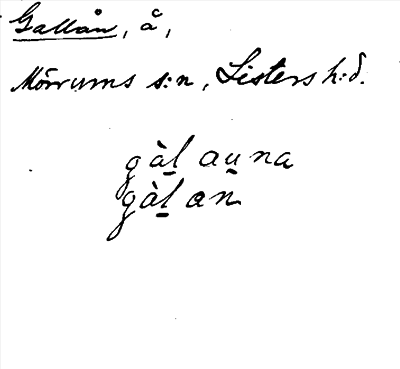 Gallån, å,
Mörrums s:n, Listers h:d.
gàḻ au̱na
gàḻ an